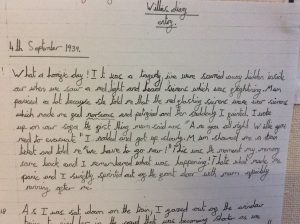 Willie's diary
entry.
4th September 1939.
What a horrific day! It was a tragedy, we were scurried away hidden inside
our when we saw a red light and heard sirens which was frightening. Mam
panicked a lot because she told me that the red flashing sirens were war sirens
which made me feel nervous and petrified and then suddenly I fainted. I woke
up on our sofa the first thing mam said was "Are you all right Willie you
need to evacuate" I nodded and got up slowly. Mam showed me a train
ticket and told me "We have to go now!" This was the moment my memory
came back and I remembered what was happening! That what made me
panic and I swiftly sprinted out of the front door with mam rapidly
running after me.
As I was sat down on the train, I gazed out of the window